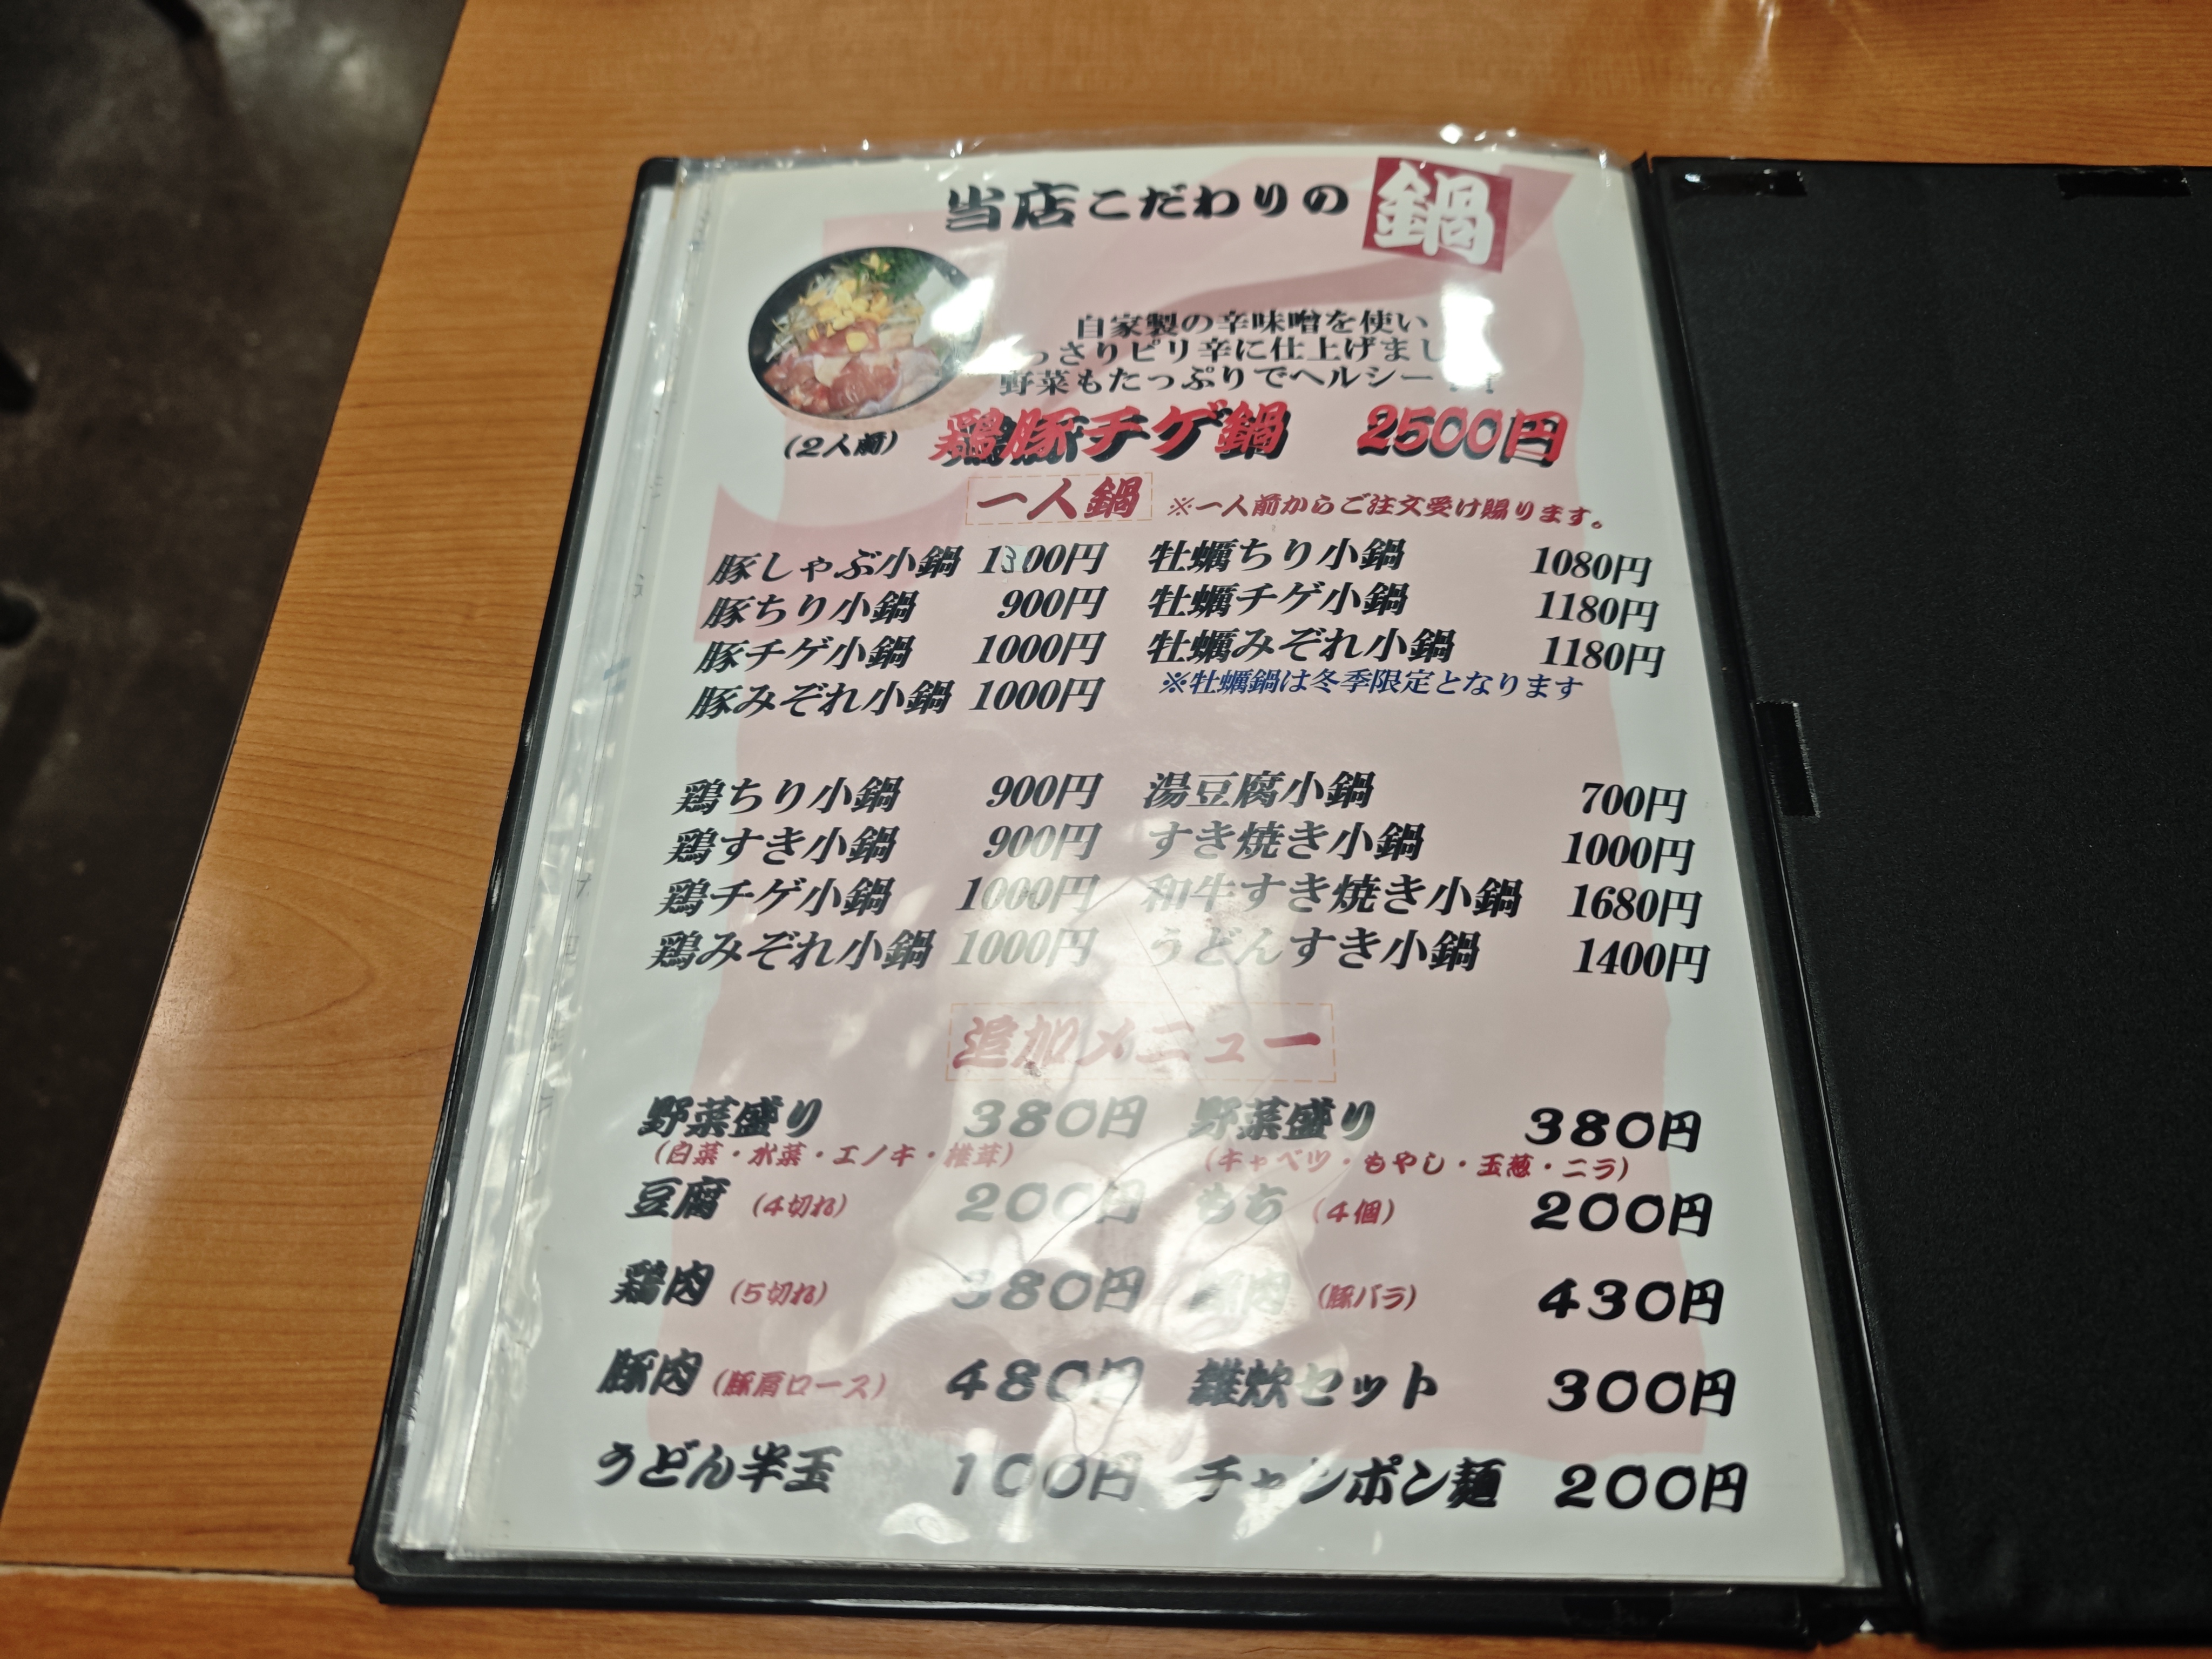 当店こだわりの 鍋
自家製の辛味噌を使い
っさりピリ辛に仕上げまし
野菜もたっぷりでヘルシー
(2人前) 鶏豚チゲ鍋 2500円
一人鍋 ※一人前からご注文受け賜ります。
豚しゃぶ小鍋 1300円 牡蠣ちり小鍋 1080円
豚ちり小鍋 900円 牡蠣チゲ小鍋 1180円
豚チゲ小鍋 1000円 牡蠣みぞれ小鍋 1180円
豚みぞれ小鍋 1000円 ※牡蠣鍋は冬季限定となります
鶏ちり小鍋 900円 湯豆腐小鍋 700円
鶏すき小鍋 900円 すき焼き小鍋 1000円
鶏チゲ小鍋 1000円 和牛すき焼き小鍋 1680円
鶏みぞれ小鍋 1000円 うどんすき小鍋 1400円
追加メニュー
野菜盛り 380円 野菜盛り 380円
(白菜・水菜・エノキ・椎茸) (キャベツ・もやし・玉葱・ニラ)
豆腐 (4切れ) 200円 もち (4個) 200円
鶏肉 (5切れ) 380円 豚肉 (豚バラ) 430円
豚肉 (豚肩ロース) 480円 雑炊セット 300円
うどん半玉 100円 チャンポン麺 200円